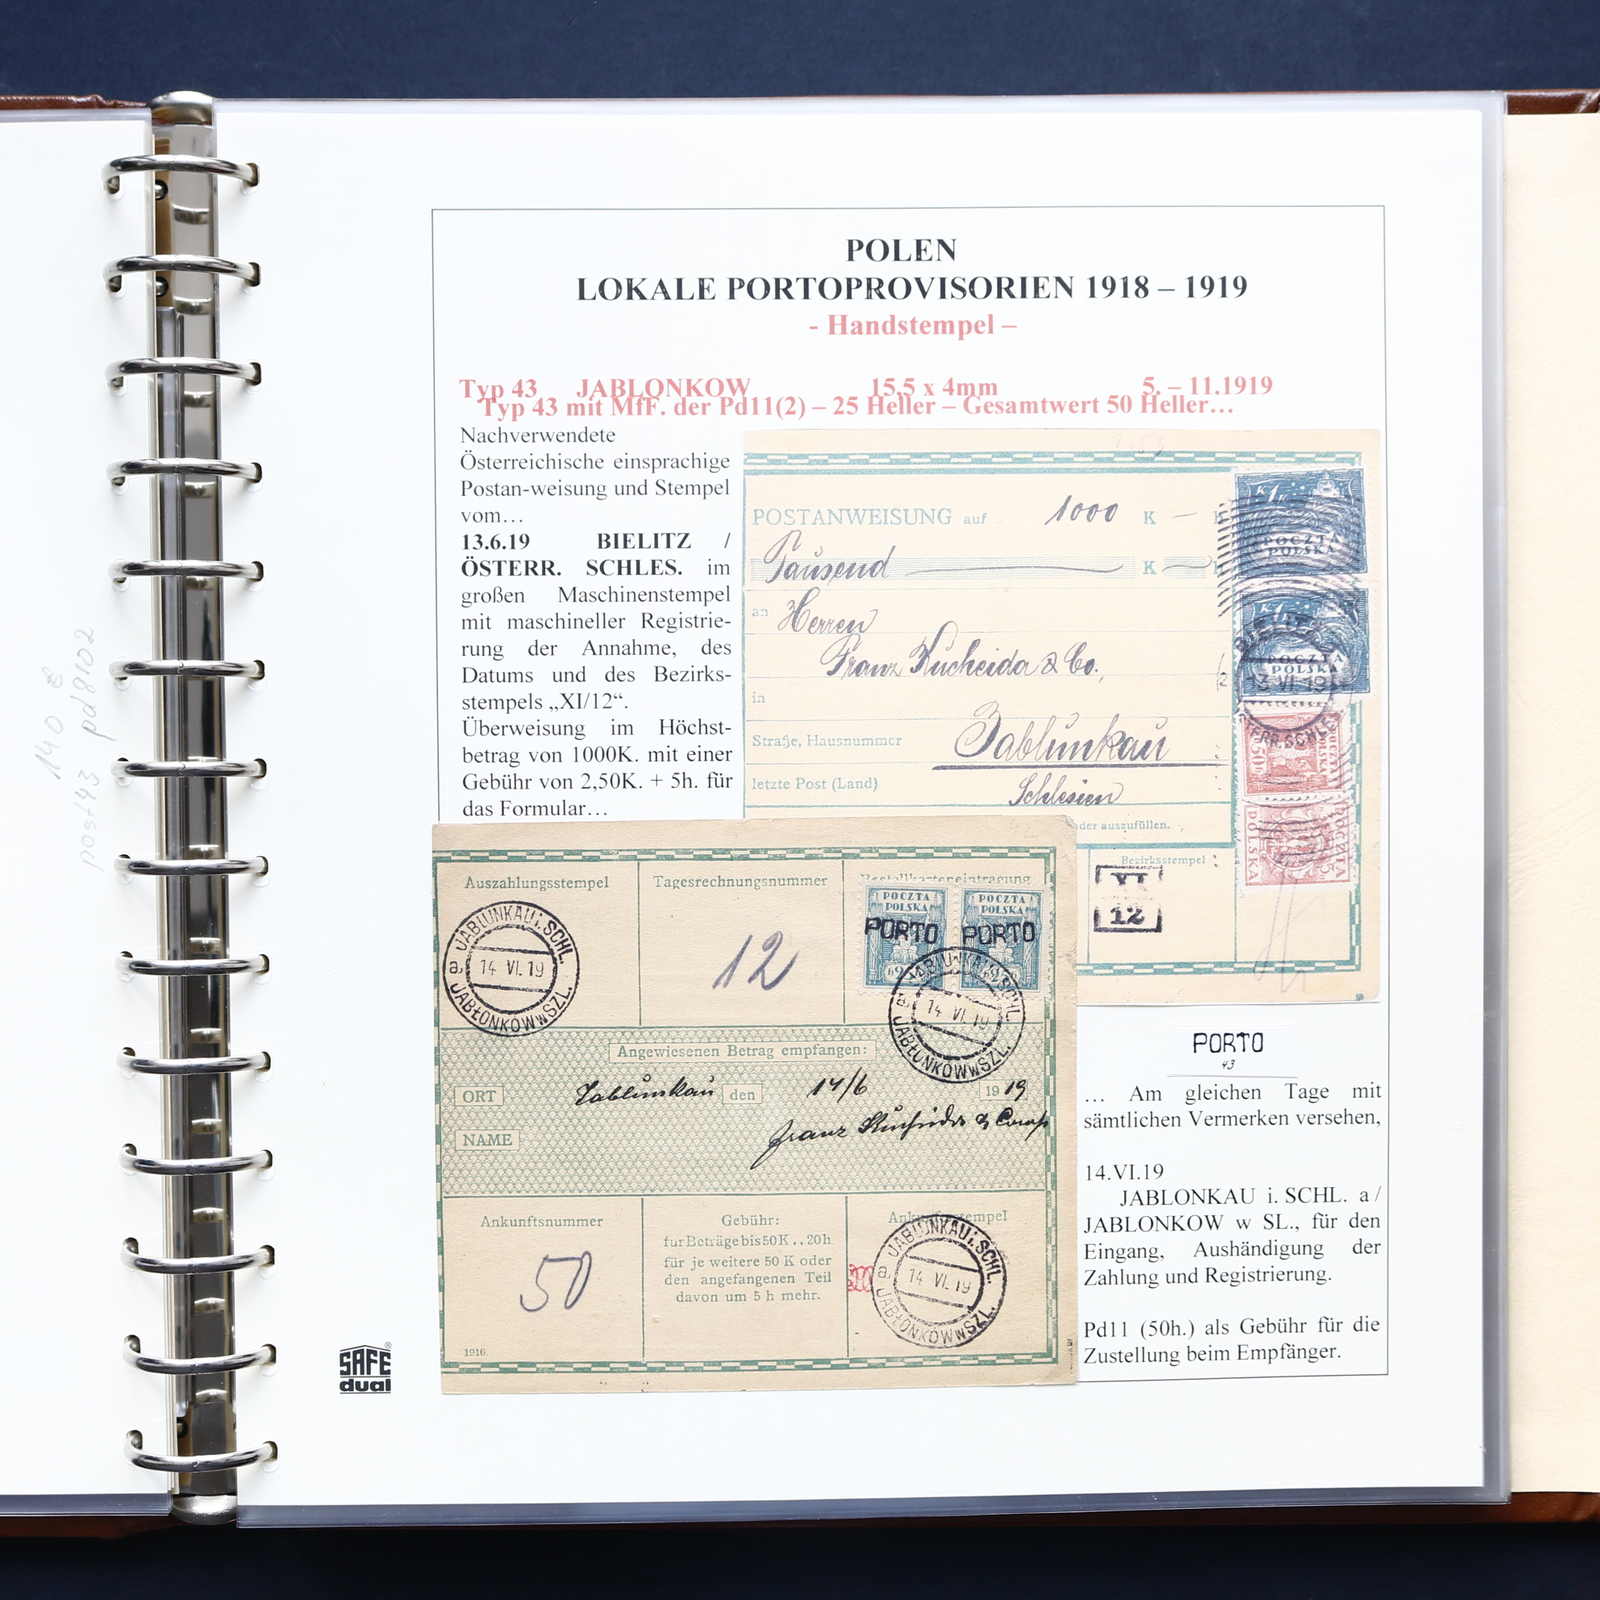 POLEN
LOKALE PORTOPROVISORIEN 1918 – 1919
- Handstempel –
Typ 43 JABLONKOW 15.5 x 4mm 5. – 11.1919
Typ 43 mit MfF. der Pd11(2) – 25 Heller – Gesamtwert 50 Heller…
Nachverwendete
Österreichische einsprachige
Postan-weisung und Stempel
vom…
13.6.19 BIELITZ /
ÖSTERR. SCHLES. im
großen Maschinenstempel
mit maschineller Registrie-
rung der Annahme, des
Datums und des Bezirks-
stempels „XI/12“.
Überweisung im Höchst-
betrag von 1000K. mit einer
Gebühr von 2,50K. + 5h. für
das Formular…
POSTANWEISUNG auf 1000 K —
Tausend K
an Herren
Franz Kucheida & Co.,
in
Straße, Hausnummer Jablunkau
letzte Post (Land) Schlesien
der auszufüllen.
Bezirksstempel
XI
12
K 1 K
POCZTA
POLSKA
K 1 K
POCZTA
POLSKA
BIELITZ
13 VI 19
POCZTA
POLSKA
50
POCZTA
POLSKA
Auszahlungsstempel
Tagesrechnungsnummer
Bestellkarteneintragung
JABLUNKAU i. SCHL.
a
14 VI. 19
JABŁONKÓW w SZL.
12
POCZTA
POLSKA
PORTO
POCZTA
POLSKA
PORTO
JABLUNKAU i. SCHL.
a
14 VI. 19
JABŁONKÓW w SZL.
Angewiesenen Betrag empfangen:
ORT Jablunkau den 14/6 1919
NAME Franz Kucheida & Comp
Ankunftsnummer
50
Gebühr:
für Beträge bis 50 K . . 20 h
für je weitere 50 K oder
den angefangenen Teil
davon um 5 h mehr.
Ankunftsstempel
JABLUNKAU i. SCHL.
a
14 VI. 19
JABŁONKÓW w SZL.
1916.
PORTO
43
… Am gleichen Tage mit
sämtlichen Vermerken versehen,
14.VI.19
JABLONKAU i. SCHL. a /
JABLONKOW w SL., für den
Eingang, Aushändigung der
Zahlung und Registrierung.
Pd11 (50h.) als Gebühr für die
Zustellung beim Empfänger.
SAFE
dual
140 €
post43 pd8102